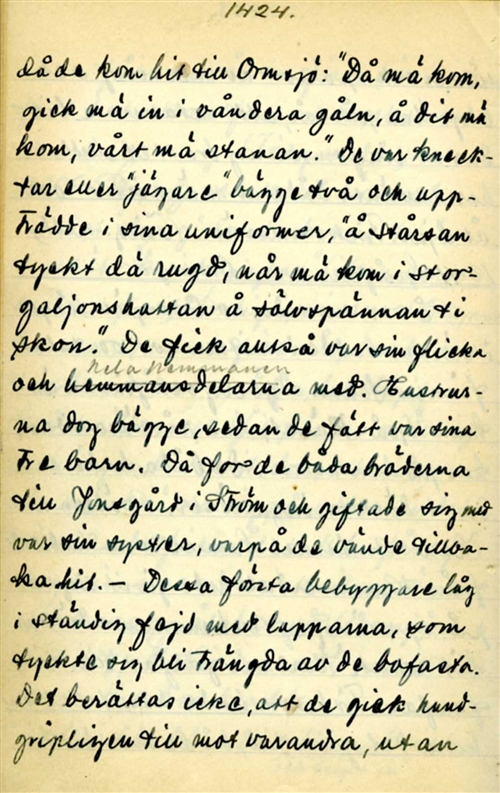 1424.
då de kom hit till Ormsjö: "Då må kom,
gick må in i våndera gåln, å dit må
kom, vårt må stanan." De var kneck-
tar eller "jägare" bägge två och upp-
trädde i sina uniformer, "å stårsan
tyckt dä rugð, når må kom i stor-
galjonshattan å sölvspännan ti
skon." De fick också var sin flicka
hela hemmanen
och hemmansdelarna med. Hustrur-
na dog bägge, sedan de fått var sina
tre barn. Då for de båda bröderna
till Jonsgård i Ström och giftade sig med
var sin syster, varpå de vände tillba-
ka hit. — Dessa första bebyggare låg
i ständig fejd med lapparna, som
tyckte sig bli trängda av de bofasta.
Det berättas icke, att de gick hand-
gripligen till mot varandra, utan